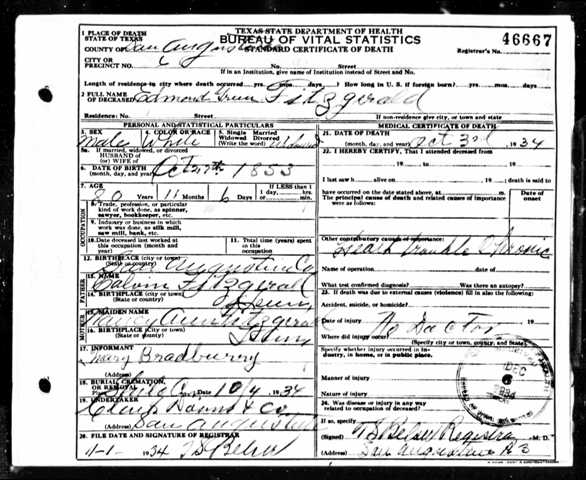 TEXAS STATE DEPARTMENT OF HEALTH
BUREAU OF VITAL STATISTICS
STANDARD CERTIFICATE OF DEATH
46667
1 PLACE OF DEATH
STATE OF TEXAS
COUNTY OF San Augustine
CITY OR
PRECINCT No.
No. Street
Registrar's No.
If in an Institution, give name of Institution instead of Street and No.
Length of residence in city where death occurred yrs. mos. days. How long in U. S. if foreign born? yrs. mos. days
2 FULL NAME
OF DECEASED Edmond Green Fitzgerald
Residence: No. Street
If non-residence give city, or town and state
PERSONAL AND STATISTICAL PARTICULARS
3. SEX
Male
4. COLOR OR RACE
White
5. Single Married
Widowed Divorced
(Write the word) Widowed
5a. If married, widowed, or divorced
HUSBAND OF
(or) WIFE of
6. DATE OF BIRTH
(month, day, and year) Oct 27th 1853
7. AGE
80 Years 11 Months 6 Days
IF LESS than 1
1 day, hrs.
or min.
OCCUPATION
8. Trade, profession, or particular
kind of work done, as spinner,
sawyer, bookkeeper, etc.
9. Industry or business in which
work was done, as silk mill,
saw mill, bank, etc.
10. Date deceased last worked at
this occupation (month and
year)
11. Total time (years)
spent in this
occupation
12. BIRTHPLACE (city or town)
(State or country) San Augustine Co
FATHER
13. NAME
Calvin Fitzgerald
14. BIRTHPLACE (city or town)
(State or country) Tenn
MOTHER
15. MAIDEN NAME
Nancy Ann Fitzgerald
16. BIRTHPLACE (city or town)
(State or country)
17. INFORMANT
Mary Bradburry
(Address)
18. BURIAL, CREMATION,
OR REMOVAL
Date 10/4 1934
19. UNDERTAKER
& Co
(Address) San Augustine
20. FILE DATE AND SIGNATURE OF REGISTRAR
11-1- 1934
MEDICAL CERTIFICATE OF DEATH
21. DATE OF DEATH
(month, day, and year) Oct 3rd 1934
22. I HEREBY CERTIFY, That I attended deceased from
, 19 to , 19
I last saw h alive on , 19 ; death is said to
have occurred on the date stated above, at m.
The principal cause of death and related causes of importance
were as follows:
Date of
onset
Other contributory causes of importance:
Heart Trouble Chronic
Name of operation date of
What test confirmed diagnosis? Was there an autopsy?
23. If death was due to external causes (violence) fill in also the following:
Accident, suicide, or homicide?
Date of injury 19
No Doctor
Where did injury occur?
(Specify city or town, county, and State)
Specify whether injury occurred in industry, in home, or in public place.
Manner of injury
Nature of injury
24. Was disease or injury in any way
related to occupation of deceased?
If so, specify
(Signed) Registrar M. D.
(Address) San Augustine R 3
DEC
6
1934